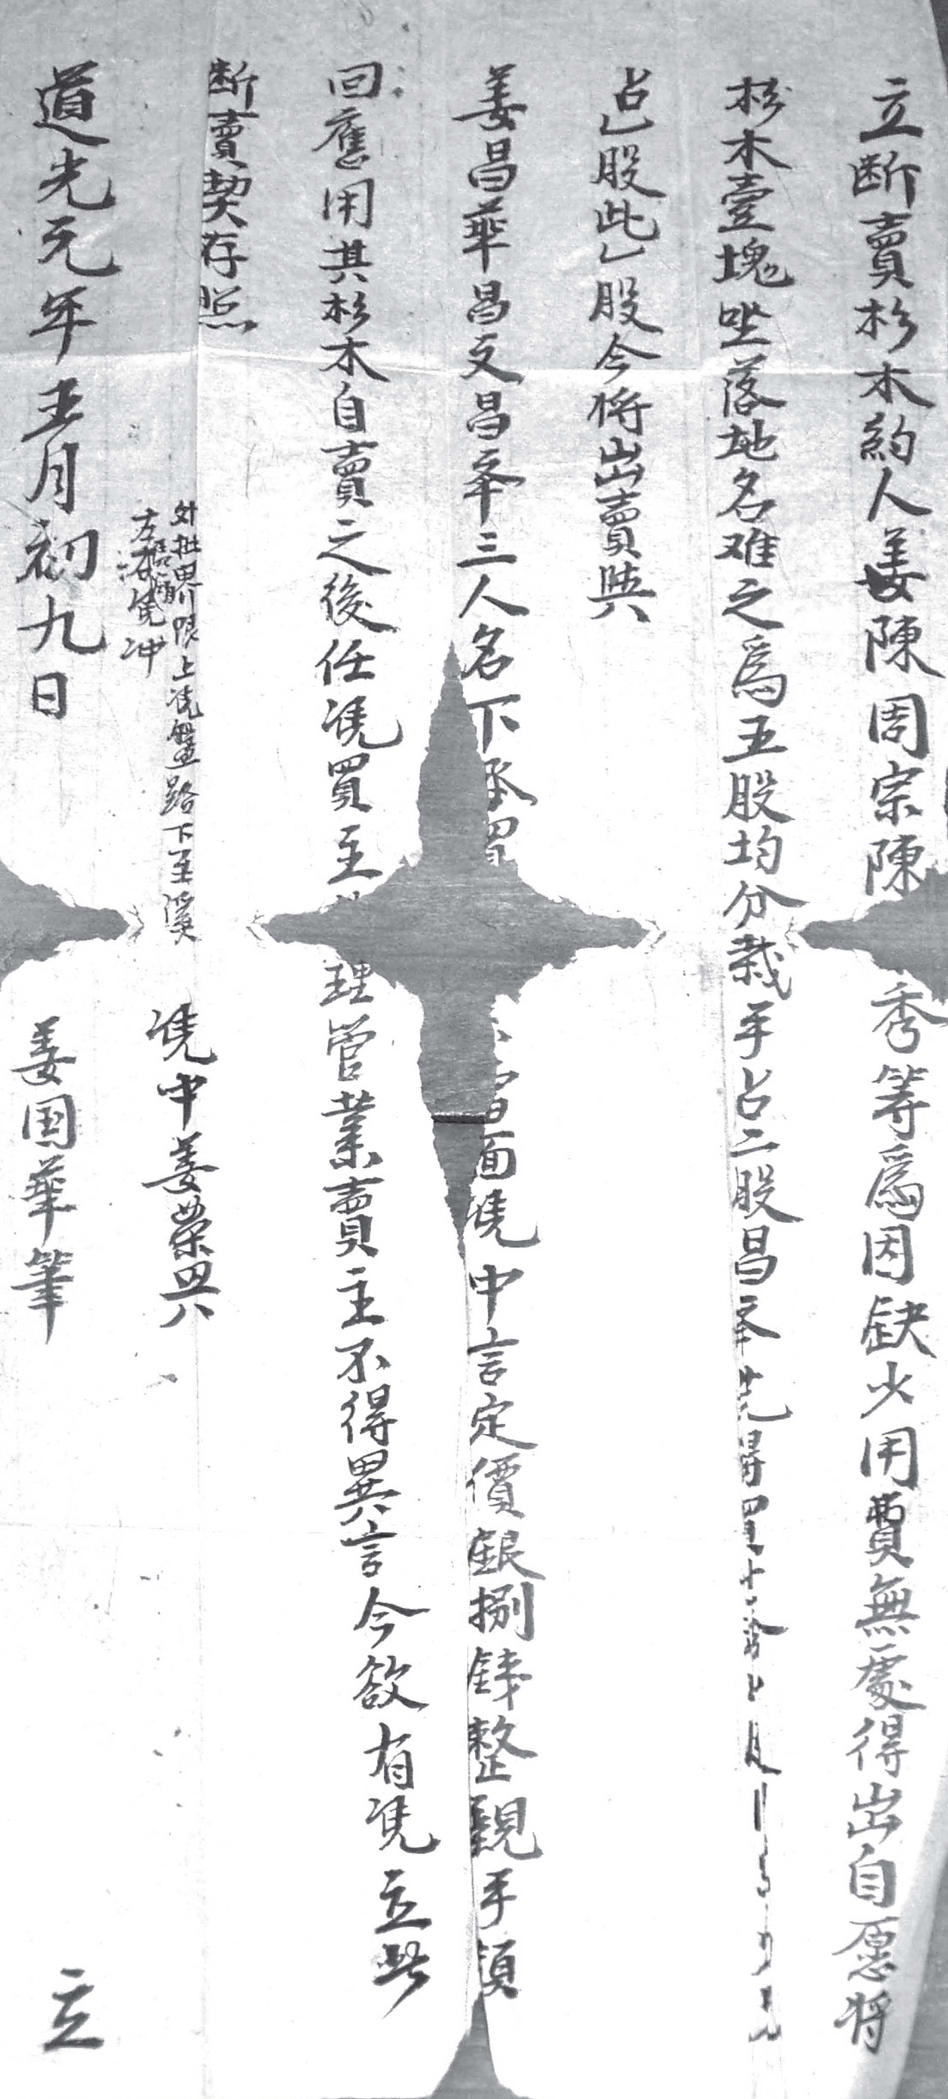 立断賣杉木約人姜陳周宗陳秀等爲因缺少用費無處得出自愿将
杉木壹塊坐落地名难之爲五股均分栽手占二股昌
占乙股此乙股今将出賣與
姜昌華昌文昌奉三人名下承買面凴中言定價銀捌錢整親手領
回應用其杉木自賣之後任凴買主理管業賣主不得異言今欲有凴立此
断賣契存照
外批界限上凴盤路下至溪
左右凴冲
凴中姜榮興
道光元年五月初九日 姜国華筆 立